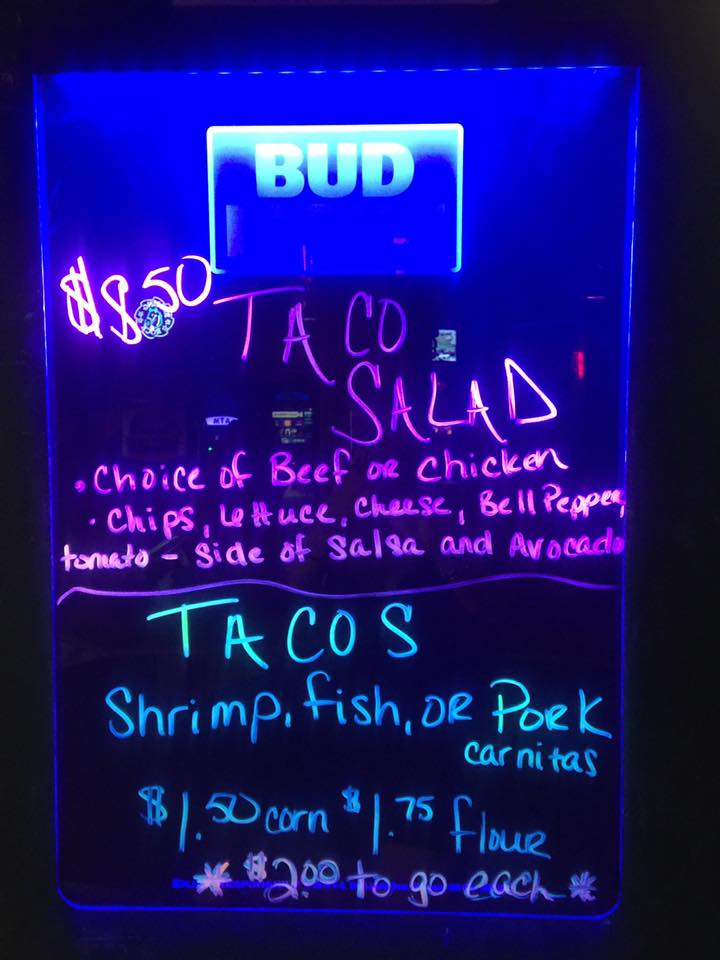 BUD
$8.50
TACO
SALAD
MTA
• Choice of Beef or Chicken
• Chips, Lettuce, Cheese, Bell Pepper,
tomato - Side of Salsa and Avocado
TACOS
Shrimp, fish, or Pork
carnitas
$1.50 corn $1.75 flour
* $2.00 to go each *